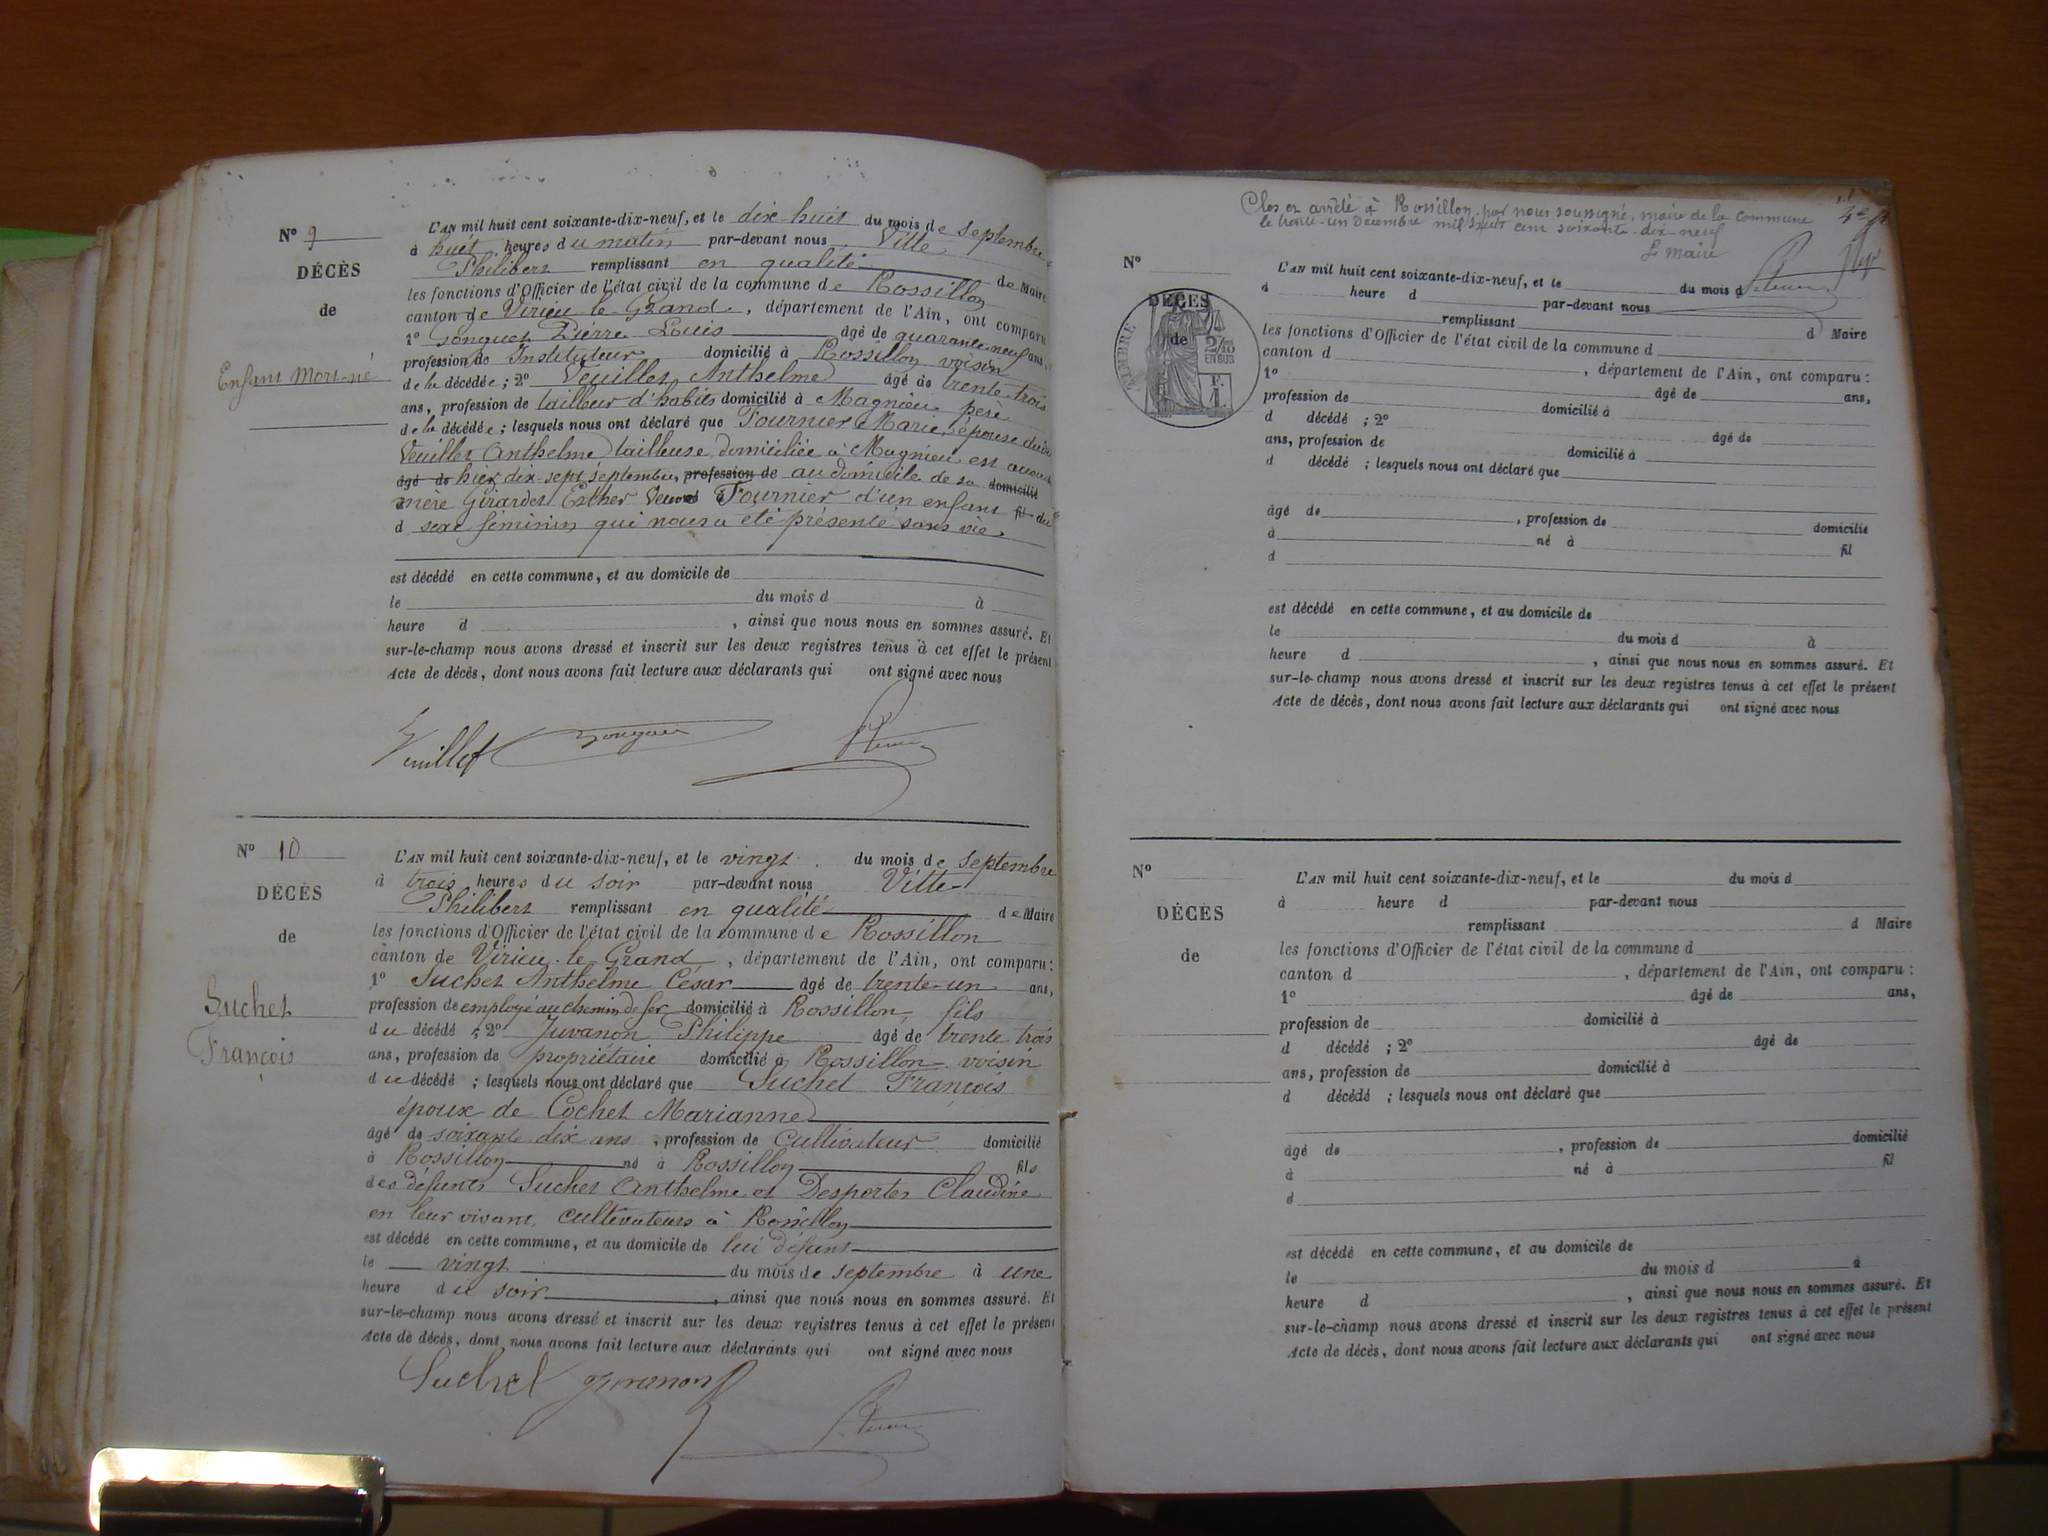 N° 9
DÉCÈS
de
Enfant Mort-né
L'AN mil huit cent soixante-dix-neuf, et le dix-huit du mois de septembre
à huit heures du matin par-devant nous Vitte
Philibert remplissant en qualité de Maire
les fonctions d'Officier de l'état civil de la commune de Rossillon
canton de Virieu-le-Grand, département de l'Ain, ont comparu
1° Pierre Louis âgé de quarante-neuf ans,
profession de Instituteur domicilié à Rossillon voisin
de la décédée; 2° Veuillet Anthelme âgé de trente-trois
ans, profession de tailleur d'habits domicilié à Magnieu père
de la décédée; lesquels nous ont déclaré que Fournier Marie, épouse dudit
Veuillet Anthelme tailleuse domiciliée à Magnieu est
âgé de hier dix-sept septembre, profession de au domicile de sa domicilié
mère Girardet Esther Veuve Fournier d'un enfant fil du
d sexe féminin qui nous a été présenté sans vie
est décédé en cette commune, et au domicile de
le du mois d à
heure d , ainsi que nous nous en sommes assuré. Et
sur-le-champ nous avons dressé et inscrit sur les deux registres tenus à cet effet le présent
Acte de décès, dont nous avons fait lecture aux déclarants qui ont signé avec nous
Veuillet
N° 10
DÉCÈS
de
Suchet
François
L'AN mil huit cent soixante-dix-neuf, et le vingt du mois de septembre
à trois heures du soir par-devant nous Vitte
Philibert remplissant en qualité de Maire
les fonctions d'Officier de l'état civil de la commune de Rossillon
canton de Virieu-le-Grand, département de l'Ain, ont comparu :
1° Suchet Anthelme César âgé de trente-un ans,
profession de employé au chemin de fer domicilié à Rossillon, fils
du décédé ; 2° Juvanon Philippe âgé de trente trois
ans, profession de propriétaire domicilié à Rossillon voisin
du décédé ; lesquels nous ont déclaré que Suchet François
époux de Cochet Marianne
âgé de soixante dix ans, profession de Cultivateur domicilié
à Rossillon né à Rossillon fils
des défunts Suchet Anthelme et Desportes Claudine
en leur vivant, cultivateurs à Rossillon
est décédé en cette commune, et au domicile de lui défunt
le vingt du mois de septembre à une
heure du soir, ainsi que nous nous en sommes assuré. Et
sur-le-champ nous avons dressé et inscrit sur les deux registres tenus à cet effet le présent
Acte de décès, dont nous avons fait lecture aux déclarants qui ont signé avec nous
Suchet Juvanon
Clos et arrêté à Rossillon par nous soussigné, maire de la commune
le trente-un Décembre mil huit cent soixante-dix-neuf
Le Maire
N°
DÉCÈS
de
TIMBRE
2/10
EN SUS
L'AN mil huit cent soixante-dix-neuf, et le du mois d
à heure d par-devant nous
remplissant d Maire
les fonctions d'Officier de l'état civil de la commune d
canton d , département de l'Ain, ont comparu :
1° âgé de ans,
profession de domicilié à
d décédé ; 2° âgé de
ans, profession de domicilié à
d décédé ; lesquels nous ont déclaré que
âgé de , profession de domicilié
à né à fil
d
est décédé en cette commune, et au domicile de
le du mois d à
heure d , ainsi que nous nous en sommes assuré. Et
sur-le-champ nous avons dressé et inscrit sur les deux registres tenus à cet effet le présent
Acte de décès, dont nous avons fait lecture aux déclarants qui ont signé avec nous
N°
DÉCÈS
de
L'AN mil huit cent soixante-dix-neuf, et le du mois d
à heure d par-devant nous
remplissant d Maire
les fonctions d'Officier de l'état civil de la commune d
canton d , département de l'Ain, ont comparu :
1° âgé de ans,
profession de domicilié à
d décédé ; 2° âgé de
ans, profession de domicilié à
d décédé ; lesquels nous ont déclaré que
âgé de , profession de domicilié
à né à fil
d
est décédé en cette commune, et au domicile de
le du mois d à
heure d , ainsi que nous nous en sommes assuré. Et
sur-le-champ nous avons dressé et inscrit sur les deux registres tenus à cet effet le présent
Acte de décès, dont nous avons fait lecture aux déclarants qui ont signé avec nous